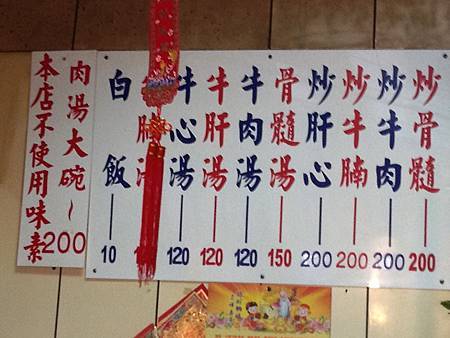 炒骨髓 200
炒牛肉 200
炒牛腩 200
炒肝心 200
骨髓湯 150
牛肉湯 120
牛肝湯 120
牛心湯 120
白飯 10
肉湯大碗~200
本店不使用味素